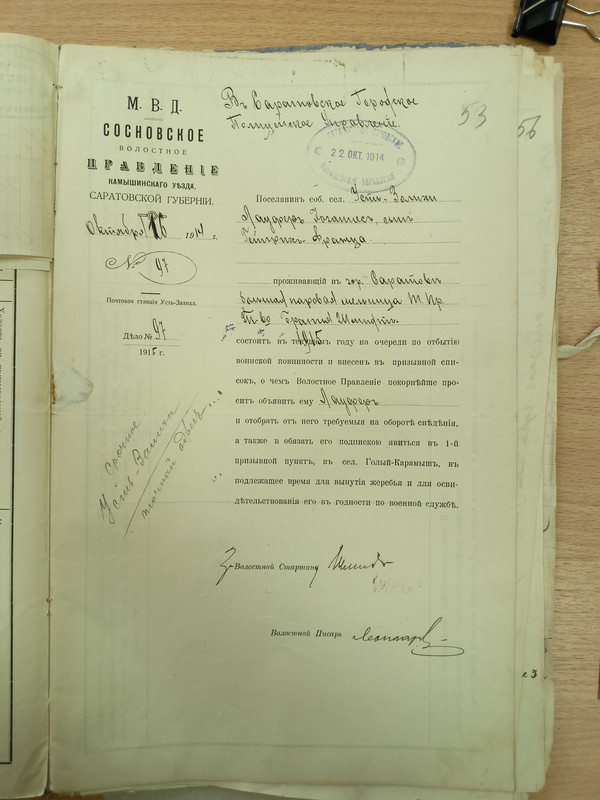 М. В. Д.
СОСНОВСКОЕ
ВОЛОСТНОЕ
ПРАВЛЕНІЕ
КАМЫШИНСКАГО УѢЗДА,
САРАТОВСКОЙ ГУБЕРНІИ.
Октября 15 1914 г.
№ 97
Почтовая станція Усть-Залиха.
Дѣло № 97
1915 г.
срочное
Усть-Залиха
точный адресъ
Въ Саратовское Городское
Полицейское Управленіе
53
56
22 ОКТ. 1914
Поселянинъ соб. сел. Усть-Залихи
Лауферъ Іоганнес, сынъ
Гейнрихъ Франца
проживающій въ гор. Саратовѣ
большая паровая мельница Т. Пр.
Т-во Братья Шмидтъ
состоитъ въ текущемъ году на очереди по отбытію
1915
воинской повинности и внесенъ въ призывной спи-
сокъ, о чемъ Волостное Правленіе покорнѣйше про-
ситъ объявить ему Лауферъ
и отобрать отъ него требуемыя на оборотѣ свѣдѣнія,
а также и обязать его подпискою явиться въ 1-й
призывной пунктъ, въ сел. Голый-Карамышъ, въ
подлежащее время для вынутія жеребья и для осви-
дѣтельствованія его въ годности по военной службѣ.
За Волостной Старшина Шмидъ
Волостной Писарь